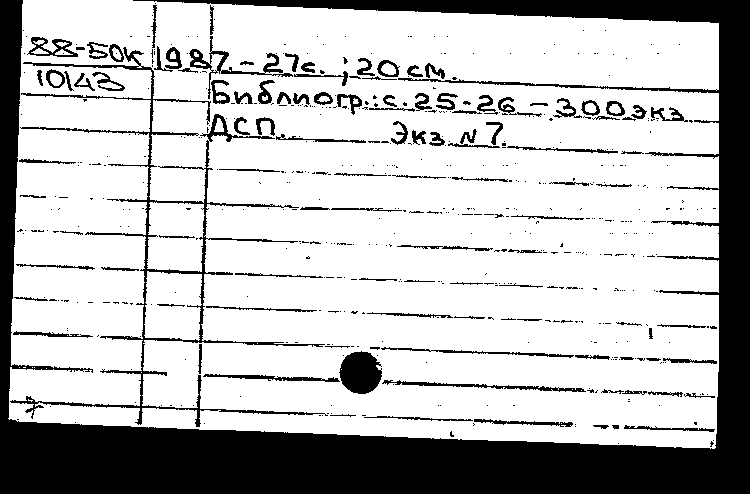 88-50К 1987. - 27с. ; 20 см.
10143
Библиогр.: с. 25-26 - 300 экз
ДСП. Экз. N 7.